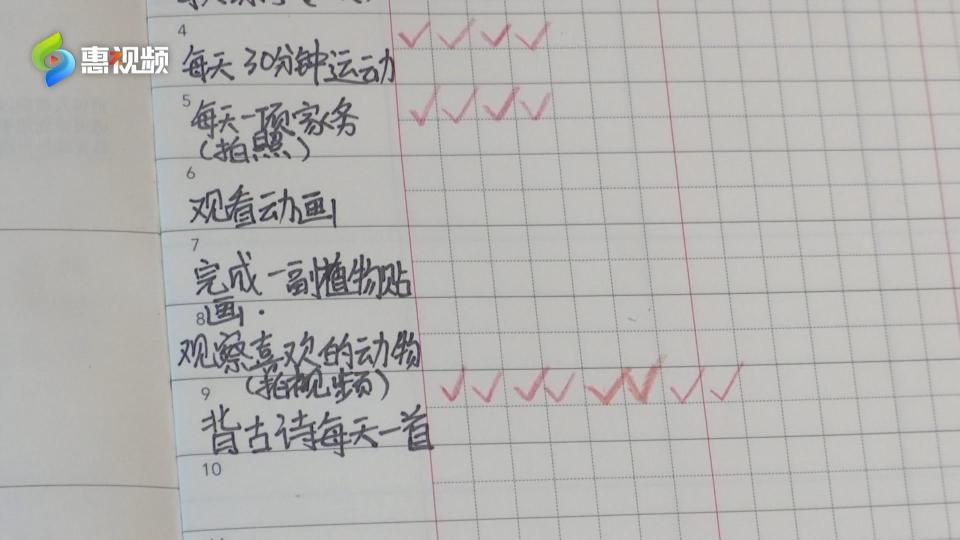 惠视频
4
每天30分钟运动
5
每天一项家务
(拍照)
6
观看动画
7
完成一副植物贴
画.
8
观察喜欢的动物
(拍视频)
9
背古诗每天一首
10